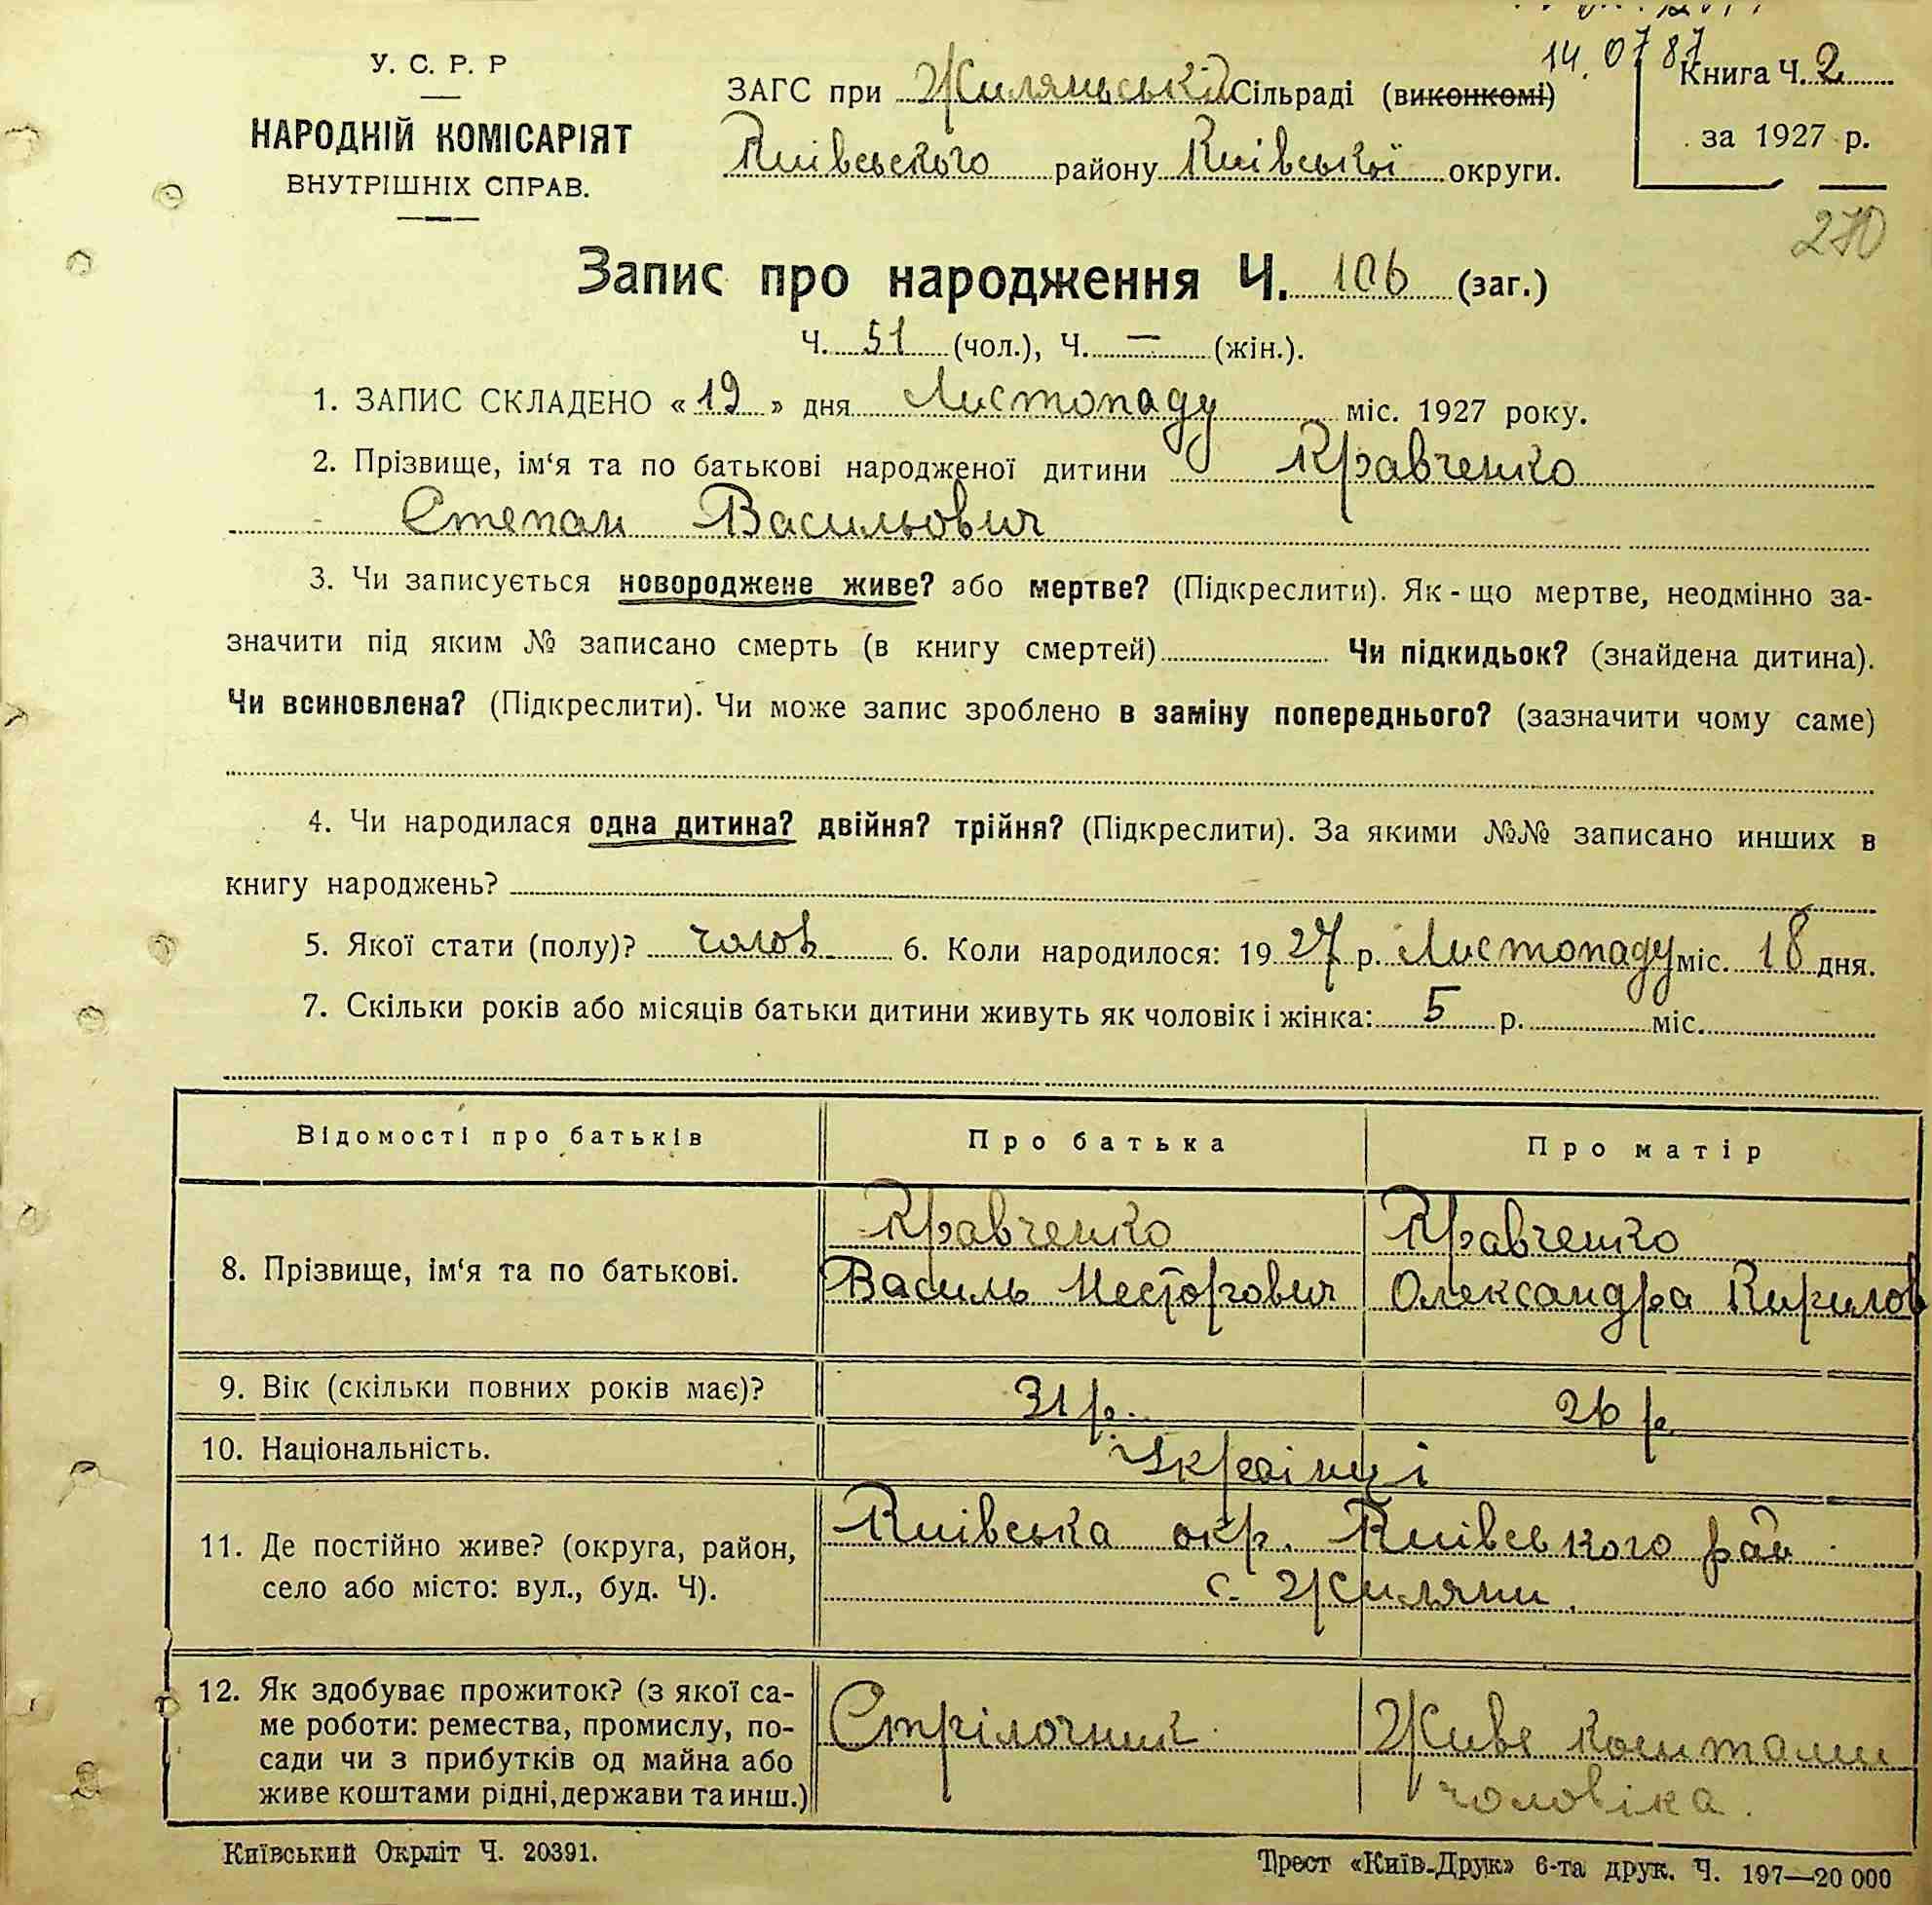 14.07 87
У. С. Р. Р
НАРОДНІЙ КОМІСАРІЯТ
ВНУТРІШНІХ СПРАВ.
ЗАГС при Жилянській Сільраді (виконкомі)
Київського району Київської округи.
Книга Ч. 2
за 1927 р.
270
Запис про народження Ч. 106 (заг.)
Ч. 51 (чол.), Ч. — (жін.).
1. ЗАПИС СКЛАДЕНО « 19 » дня Листопаду міс. 1927 року.
2. Прізвище, ім‘я та по батькові народженої дитини Кравченко
Степан Васильович
3. Чи записується новороджене живе? або мертве? (Підкреслити). Як - що мертве, неодмінно за-
значити під яким № записано смерть (в книгу смертей) Чи підкидьок? (знайдена дитина).
Чи всиновлена? (Підкреслити). Чи може запис зроблено в заміну попереднього? (зазначити чому саме)
4. Чи народилася одна дитина? двійня? трійня? (Підкреслити). За якими №№ записано инших в
книгу народжень?
5. Якої стати (полу)? чолов. 6. Коли народилося: 19 27 р. Листопаду міс. 18 дня.
7. Скільки років або місяців батьки дитини живуть як чоловік і жінка: 5 р. міс.
Відомості про батьків Про батька Про матір
8. Прізвище, ім‘я та по батькові.
Кравченко
Василь Несторович
Кравченко
Олександра Кирилов
9. Вік (скільки повних років має)? 31 р. 26 р.
10. Національність. Українці
11. Де постійно живе? (округа, район,
село або місто: вул., буд. Ч).
Київська окр. Київського рай
с. Жиляни.
12. Як здобуває прожиток? (з якої са-
ме роботи: ремества, промислу, по-
сади чи з прибутків од майна або
живе коштами рідні, держави та инш.)
Стрілочник
Живе коштами
чоловіка.
Київський Окрліт Ч. 20391.
Трест «Київ-Друк» 6-та друк. Ч. 197—20 000